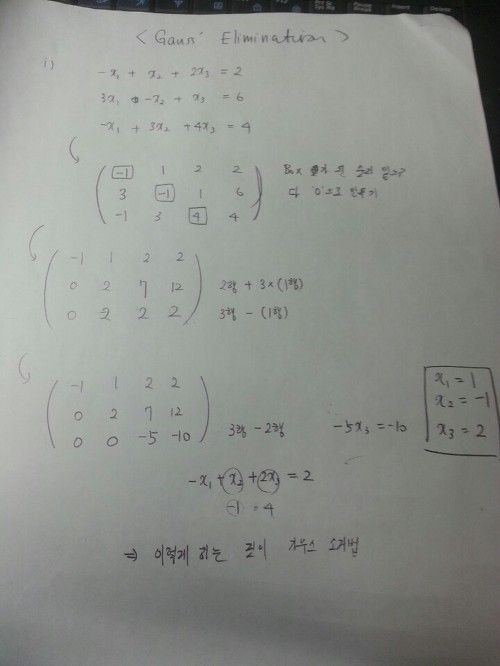 < Gauss' Elimination >
i)
-x₁ + x₂ + 2x₃ = 2
3x₁ -x₂ + x₃ = 6
-x₁ + 3x₂ +4x₃ = 4
-1 1 2 2
3 -1 1 6
-1 3 4 4
Box 가 된 밑으로
다 '0'으로 만들기
-1 1 2 2
0 2 7 12 2행 + 3×(1행)
0 2 2 2 3행 - (1행)
-1 1 2 2
0 2 7 12
0 0 -5 -10 3행 -2행 -5x₃ =-10
x₁ = 1
x₂ = -1
x₃ = 2
-x₁ + x₂ + 2x₃ = 2
-1 = 4
⇒ 이렇게 하는 것이 가우스 소거법